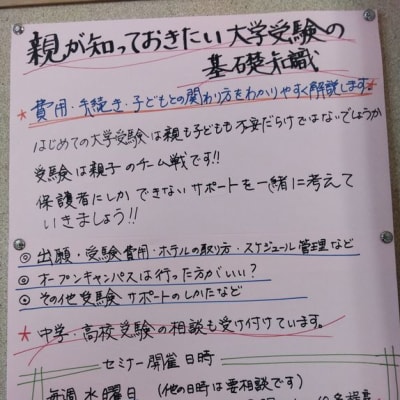 親が知っておきたい大学受験の
基礎知識
★費用・手続き・子どもとの関わり方をわかりやすく解説します★
はじめての大学受験は親も子どもも不安だらけではないでしょうか
受験は親子のチーム戦です!!
保護者にしかできないサポートを一緒に考えて
いきましょう!!
◎出願・受験費用・ホテルの取り方・スケジュール管理など
◎オープンキャンパスは行った方がいい?
◎その他受験サポートのしかたなど
★中学・高校受験の相談も受け付けています。
セミナー開催日時
毎週水曜日 (他の日時は要相談です)
名程度